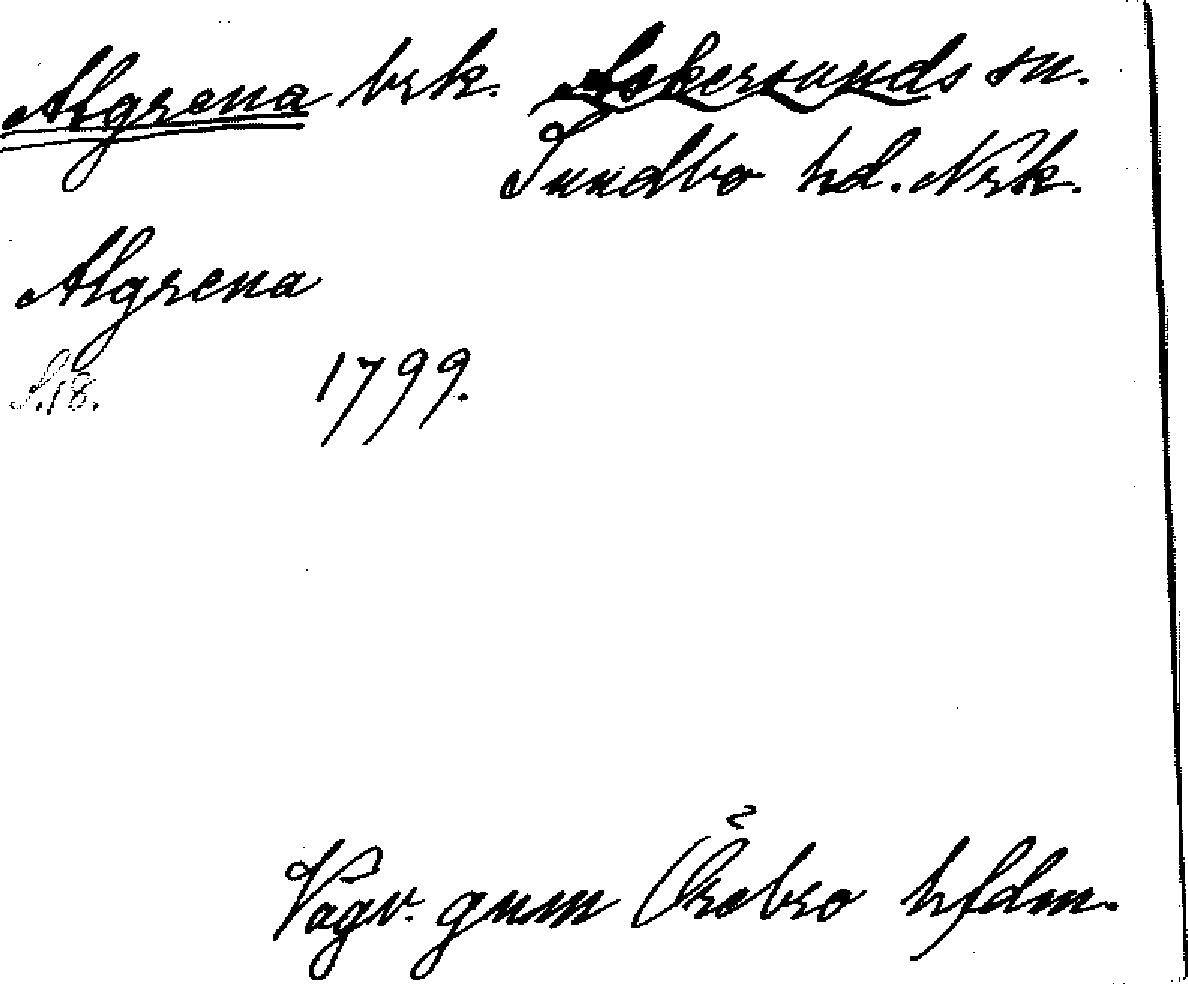 Algrena brk. Askersunds sn.
Sundbo hd. Nrk.
Algrena
S. 18. 1799.
Vägv. gnm Örebro hfdm.